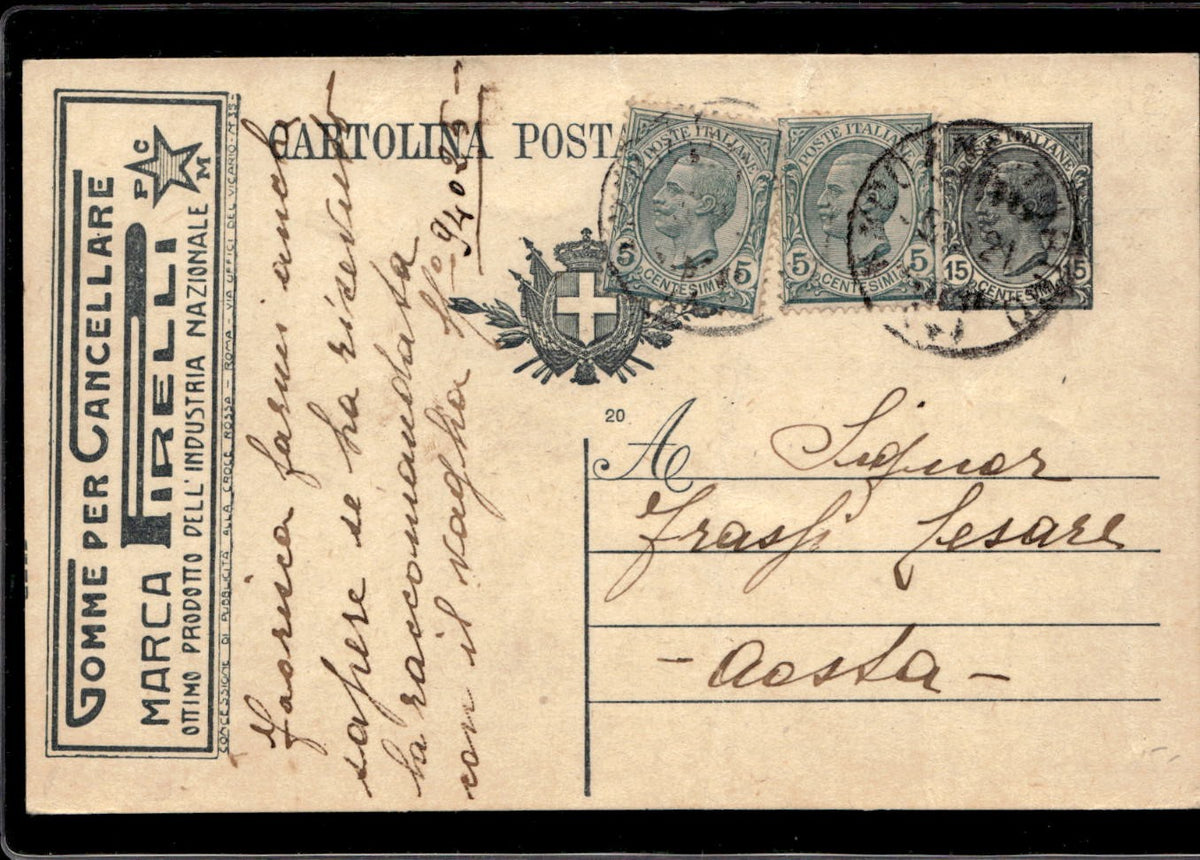 GOMME PER CANCELLARE
MARCA PIRELLI
OTTIMO PRODOTTO DELL'INDUSTRIA NAZIONALE
P C M
CONCESSIONE DI PUBBLICITÀ ALLA CROCE ROSSA - ROMA - VIA UFFICI DEL VICARIO N. 35
CARTOLINA POSTA
POSTE ITALIANE
5 5
CENTESIMI
POSTE ITALIANE
5 5
CENTESIMI
POSTE ITALIANE
15 15
CENTESIMI
Favorisca farmi anche
sapere se ha ricevuto
la raccomandata
con il vaglia N° 94025
20
A Signor
Cesare
- Aosta -